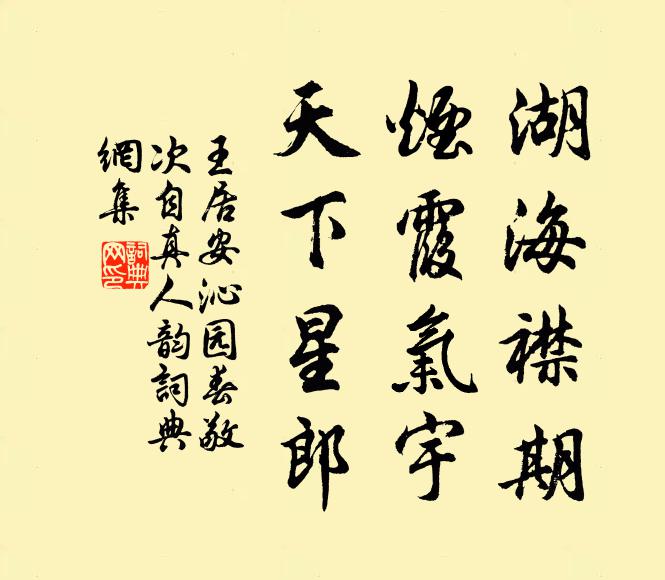 湖海襟期
煙霞氣宇
天下星郎
王居安沁园春敬
次自真人韵詞典
網集
詞典
网印